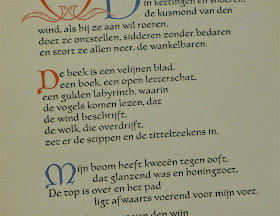 in kettingen en snoeren,
de kusmond van den
wind, als hij ze aan wil roeren.
doet ze ontstellen, sidderen zonder bedaren
en stort ze allen neer, de wankelbaren.
De beek is een velijnen blad,
een boek, een open letterschat,
een gulden labyrinth, waarin
de vogels komen lezen, dat
de wind beschrijft,
de wolk, die overdrijft,
zet er de stippen en de tittelteekens in.
Mijn boom heeft kweeën tegen ooft,
dat glanzend was en honingzoet,
De top is over en het pad
ligt afwaarts voerend voor mijn voet.
van den wijn